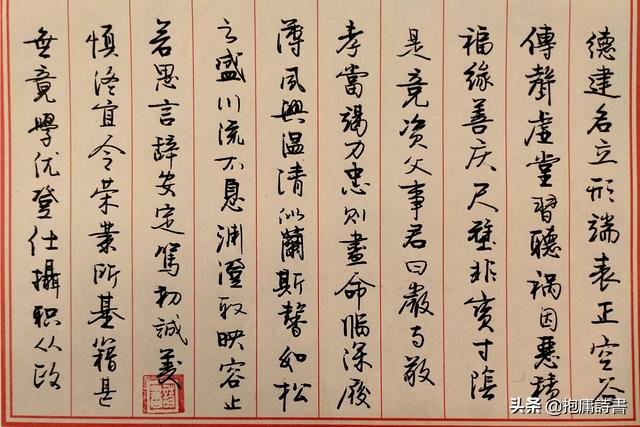 德建名立形端表正空谷
傳聲虛堂習聽禍因惡積
福緣善庆尺璧非寶寸陰
是竞资父事君曰嚴与敬
孝當竭力忠則盡命臨深履
薄夙興温清似蘭斯馨如松
之盛川流不息渊澄取映容止
若思言辭安定篤初誠美
慎终宜令荣業所基籍甚
無竟學优登仕攝职从政
头条 @抱庸詩書